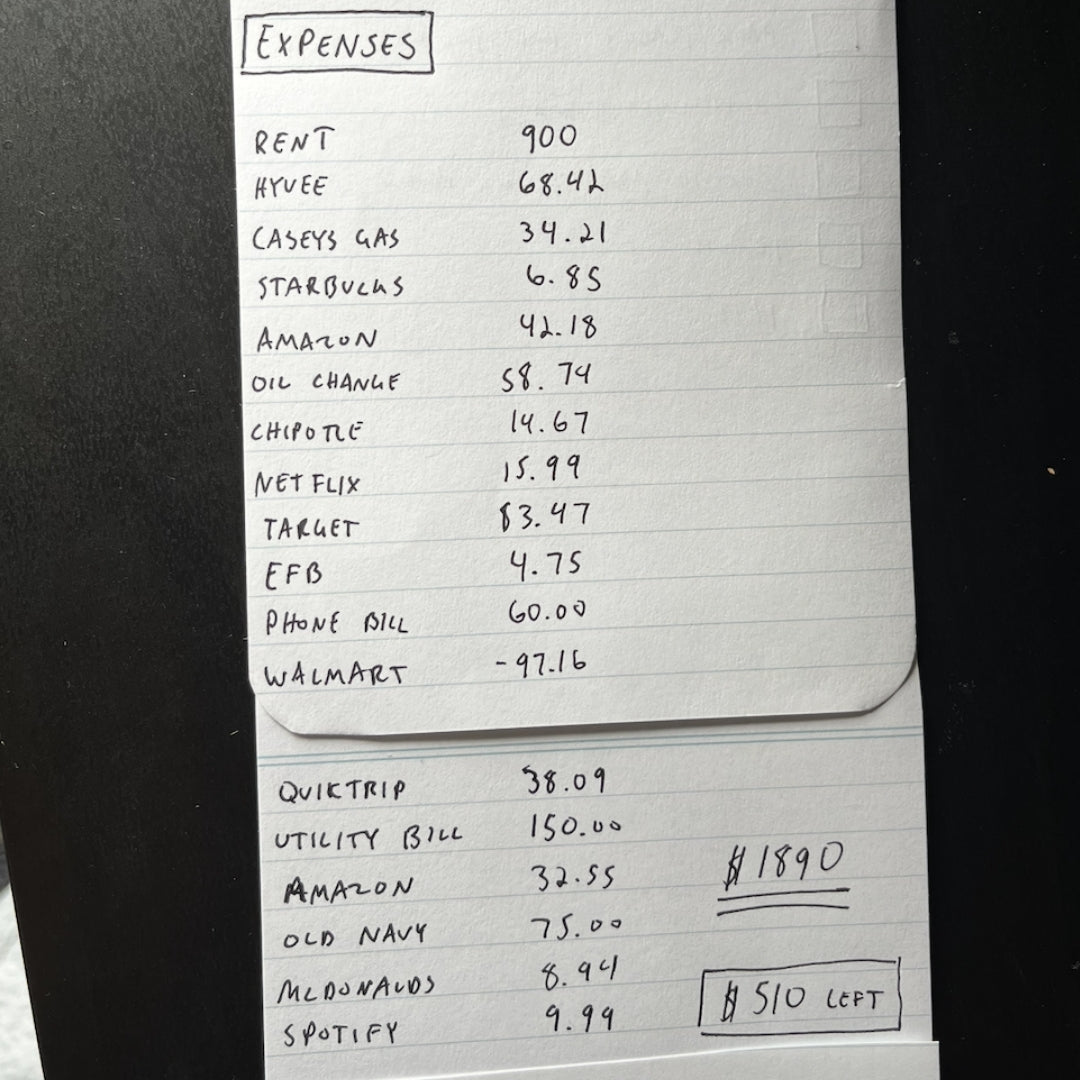 EXPENSES
RENT 900
HYVEE 68.42
CASEYS GAS 34.21
STARBUCKS 6.85
AMAZON 42.18
OIL CHANGE 58.74
CHIPOTLE 14.67
NETFLIX 15.99
TARGET 83.47
EFB 4.75
PHONE BILL 60.00
WALMART -97.16
QUIKTRIP 38.09
UTILITY BILL 150.00
AMAZON 32.55
$1890
OLD NAVY 75.00
MCDONALDS 8.94
SPOTIFY 9.99
$510 LEFT